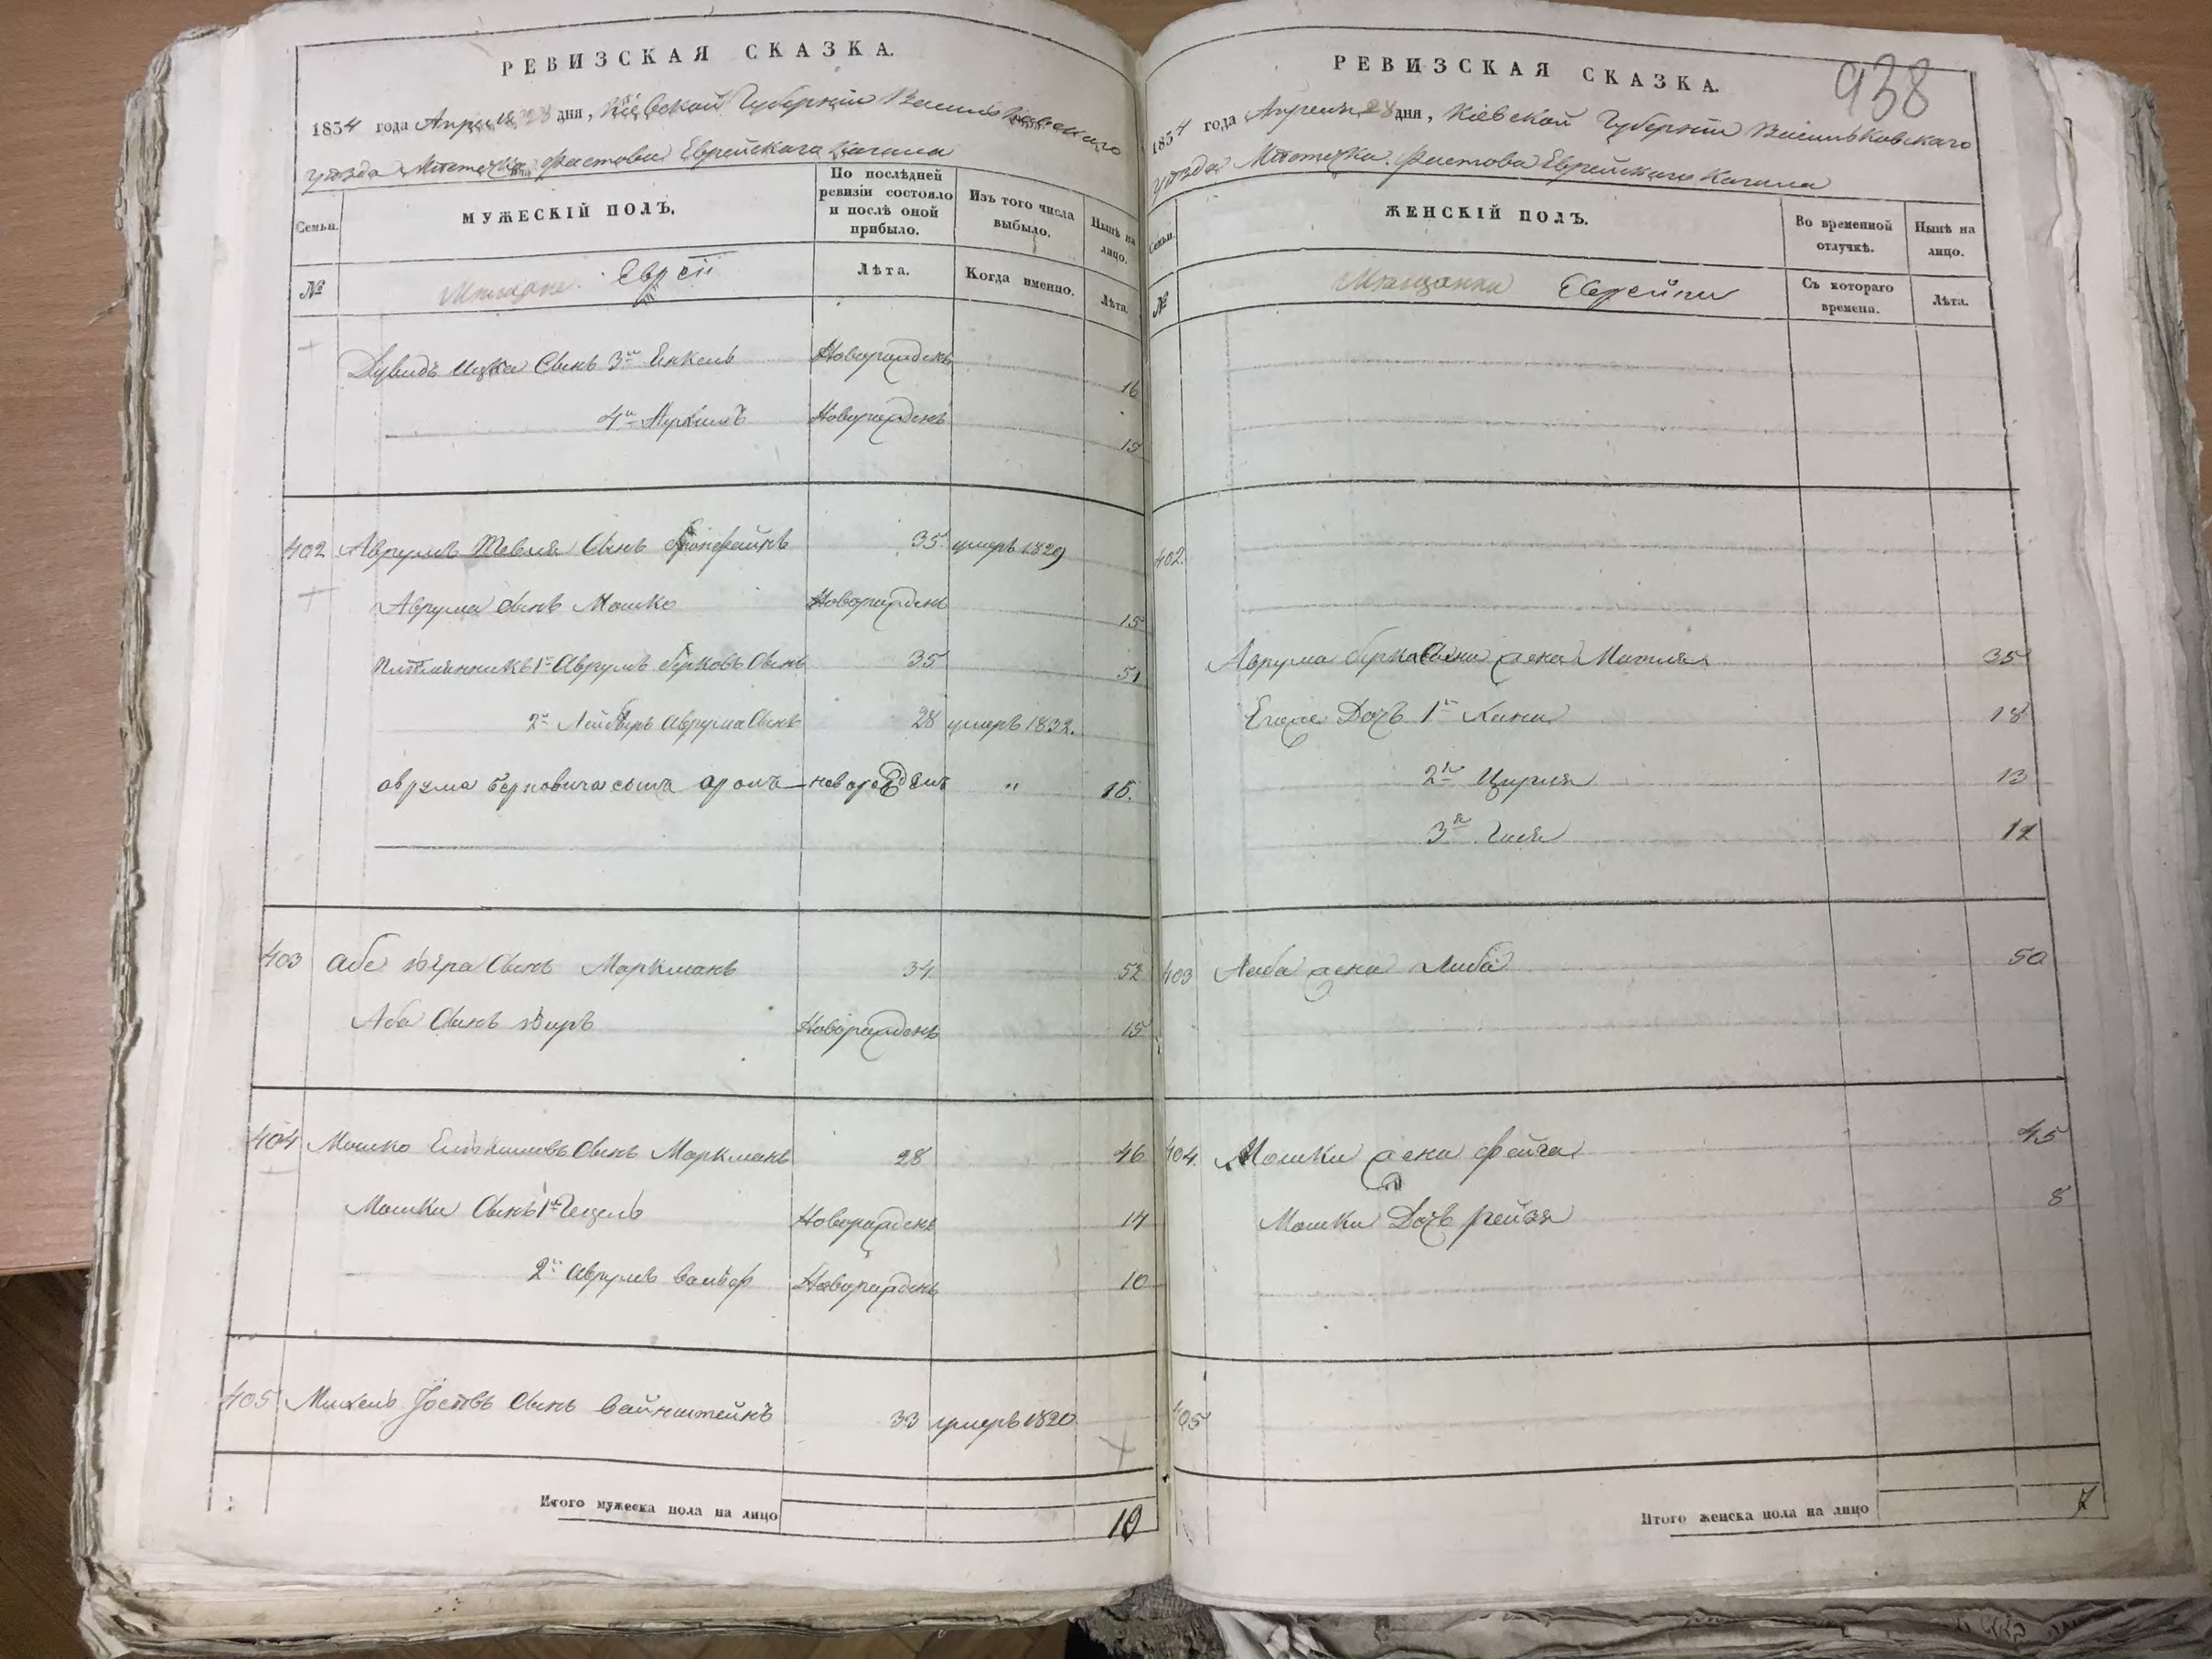 РЕВИЗСКАЯ СКАЗКА.
1834 года Апреля 28 дня, Кіевской Губерніи Васильковскаго
уѣзда Мѣстечка Фастова Еврейскаго Кагала
Семьи.
МУЖЕСКІЙ ПОЛЪ.
По послѣдней ревизіи состояло и послѣ оной прибыло.
Изъ того числа выбыло.
Нынѣ на лицо.
№
Мѣщане. Евреи
Лѣта.
Когда именно.
Лѣта.
Дувидъ Ицка Сынъ 3й Янкель Новорожденъ 16
4й Новорожденъ 15
402 Аврумъ Тевеля Сынъ 35 умеръ 1829
Аврума Сынъ Мошко Новорожденъ 15
Племянникъ 1й Аврумъ Берковъ Сынъ 35 51
2й Лейберъ Аврума Сынъ 28 умеръ 1832.
аврума Берковича сынъ аронъ—новорожденъ " 15.
403 Абе Меера Сынъ Маркманъ 34 52
Аба Сынъ Новорожденъ 15
404 Мошко Сынъ Маркманъ 28 46
Мошки Сынъ 1й Гецель Новорожденъ 14
2й Аврумъ Вольф Новорожденъ 10
405 Михель Сынъ Вайнштейнъ 33 умеръ 1820
Итого мужеска пола на лицо 10
938
РЕВИЗСКАЯ СКАЗКА.
1834 года Апреля 28 дня, Кіевской Губерніи Васильковскаго
уѣзда Мѣстечка Фастова Еврейскаго Кагала
Семьи.
ЖЕНСКІЙ ПОЛЪ.
Во временной отлучкѣ.
Нынѣ на лицо.
№
Мѣщанки Еврейки
Съ котораго времена.
Лѣта.
402.
Аврума Берковича жена 35
Егоже Дочь 1я Хана 18
2я Цирля 13
3я Гитля 12
403 Аба жена Либа 50
404. Мошки жена Фейга 45
Мошки Дочь Рейзя 8
405
Итого женска пола на лицо 7